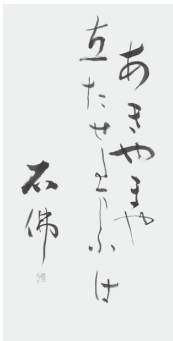 あきやまや
立たせ玉ふは
石佛